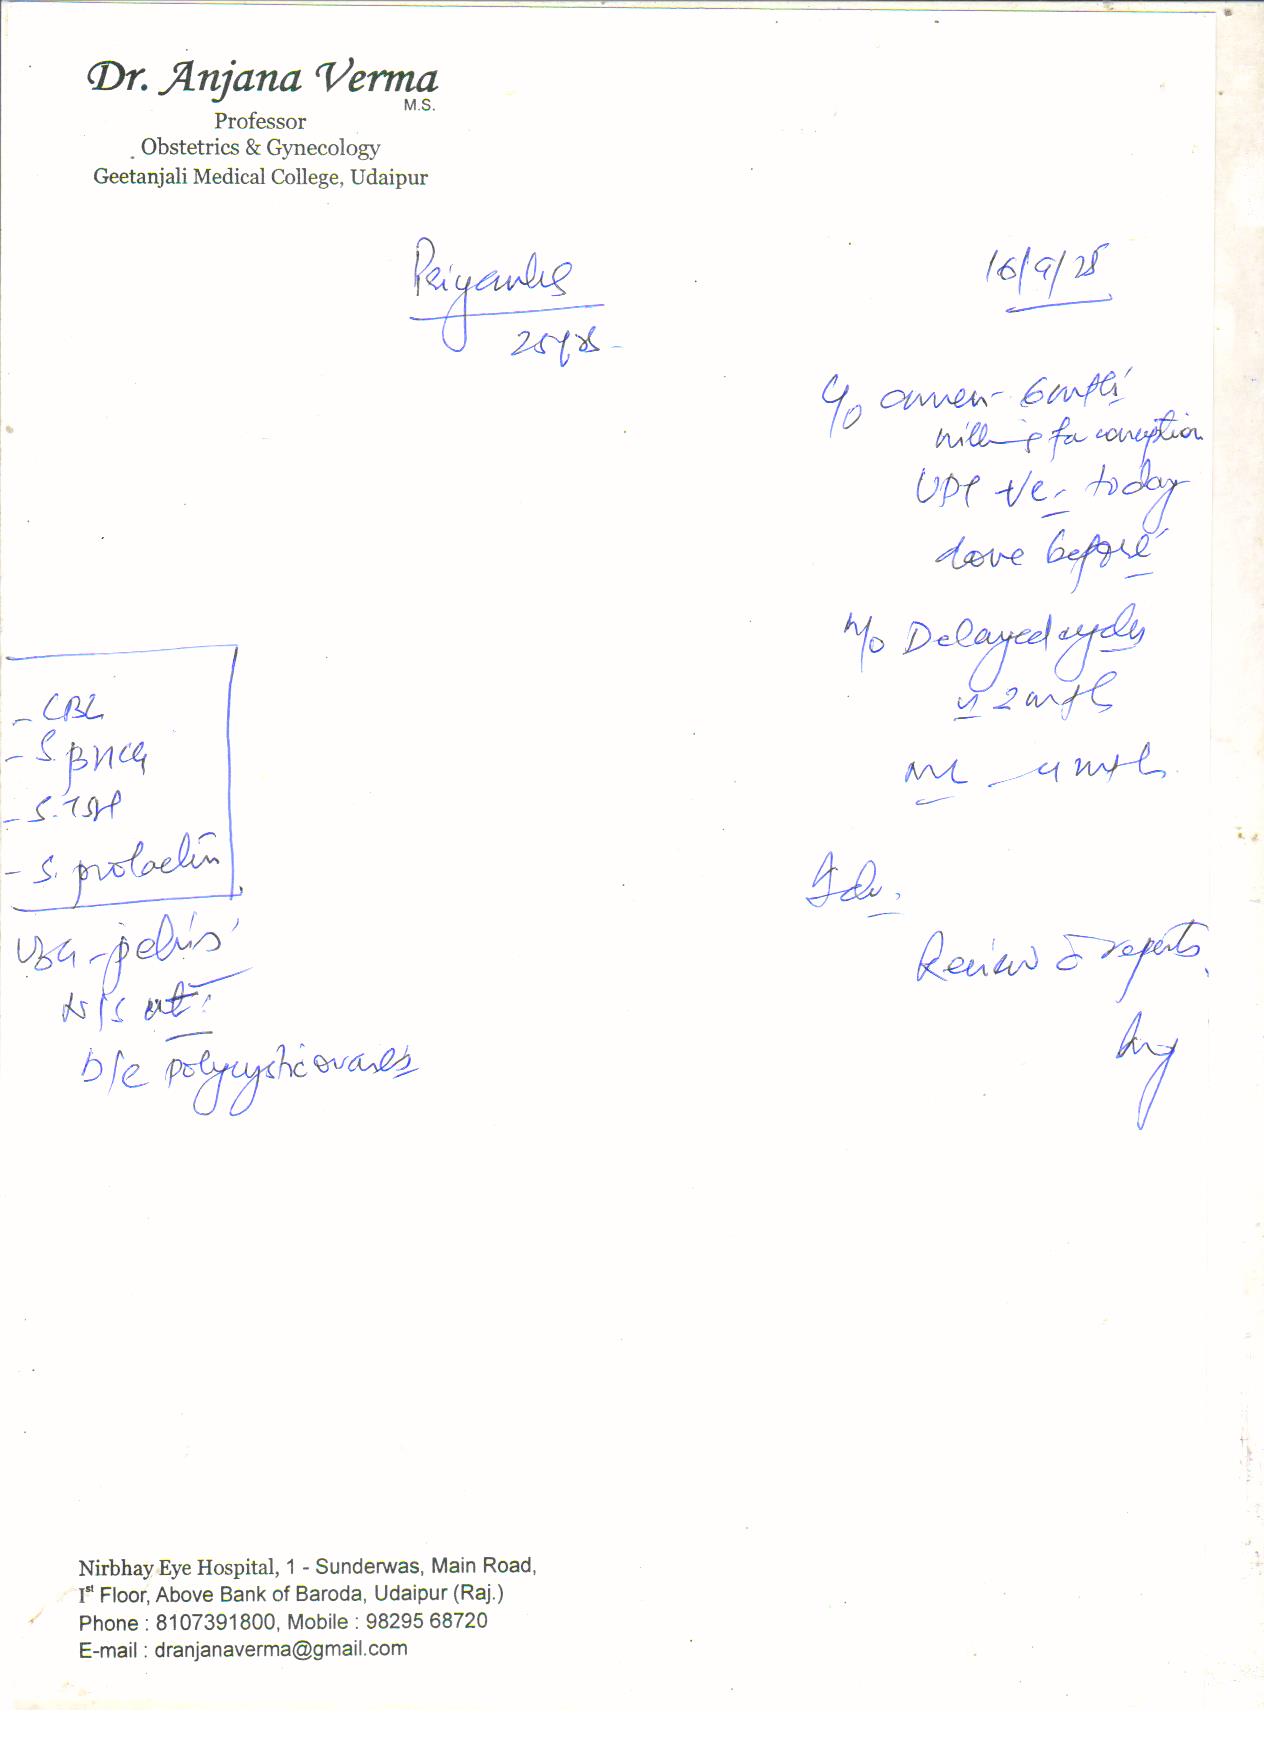 Dr. Anjana Verma
M.S.
Professor
Obstetrics & Gynecology
Geetanjali Medical College, Udaipur
Priyanka
16/9/25
25yrs
C/o amen- 6 mths
willing for conception
UPT -ve - today
done before
H/o Delayed cycles
2 mths
ML - 4 mths
Adv.
Review c̄ reports
- CBC
- S. βHCG
- S. TSH
- S. prolactin
USG - pelvis
N/S ut.
b/l polycystic ovaries
Nirbhay Eye Hospital, 1 - Sunderwas, Main Road,
Iˢᵗ Floor, Above Bank of Baroda, Udaipur (Raj.)
Phone : 8107391800, Mobile : 98295 68720
E-mail : dranjanaverma@gmail.com